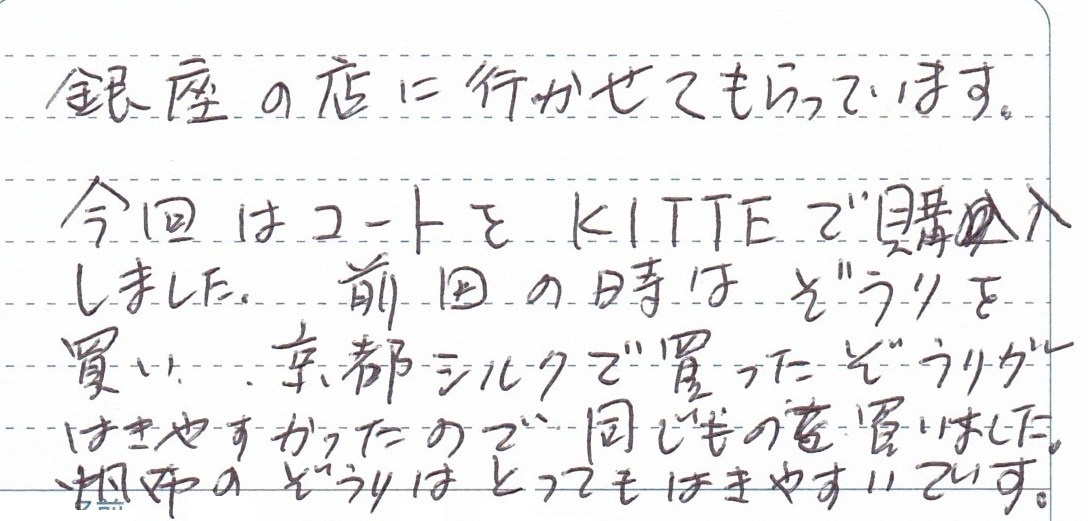 銀座の店に行かせてもらっています。
今回はコートをKITTEで購入
しました。前回の時はぞうりを
買い、京都シルクで買ったぞうりが
はきやすかったので同じものを買いました。
のぞうりはとってもはきやすいです。